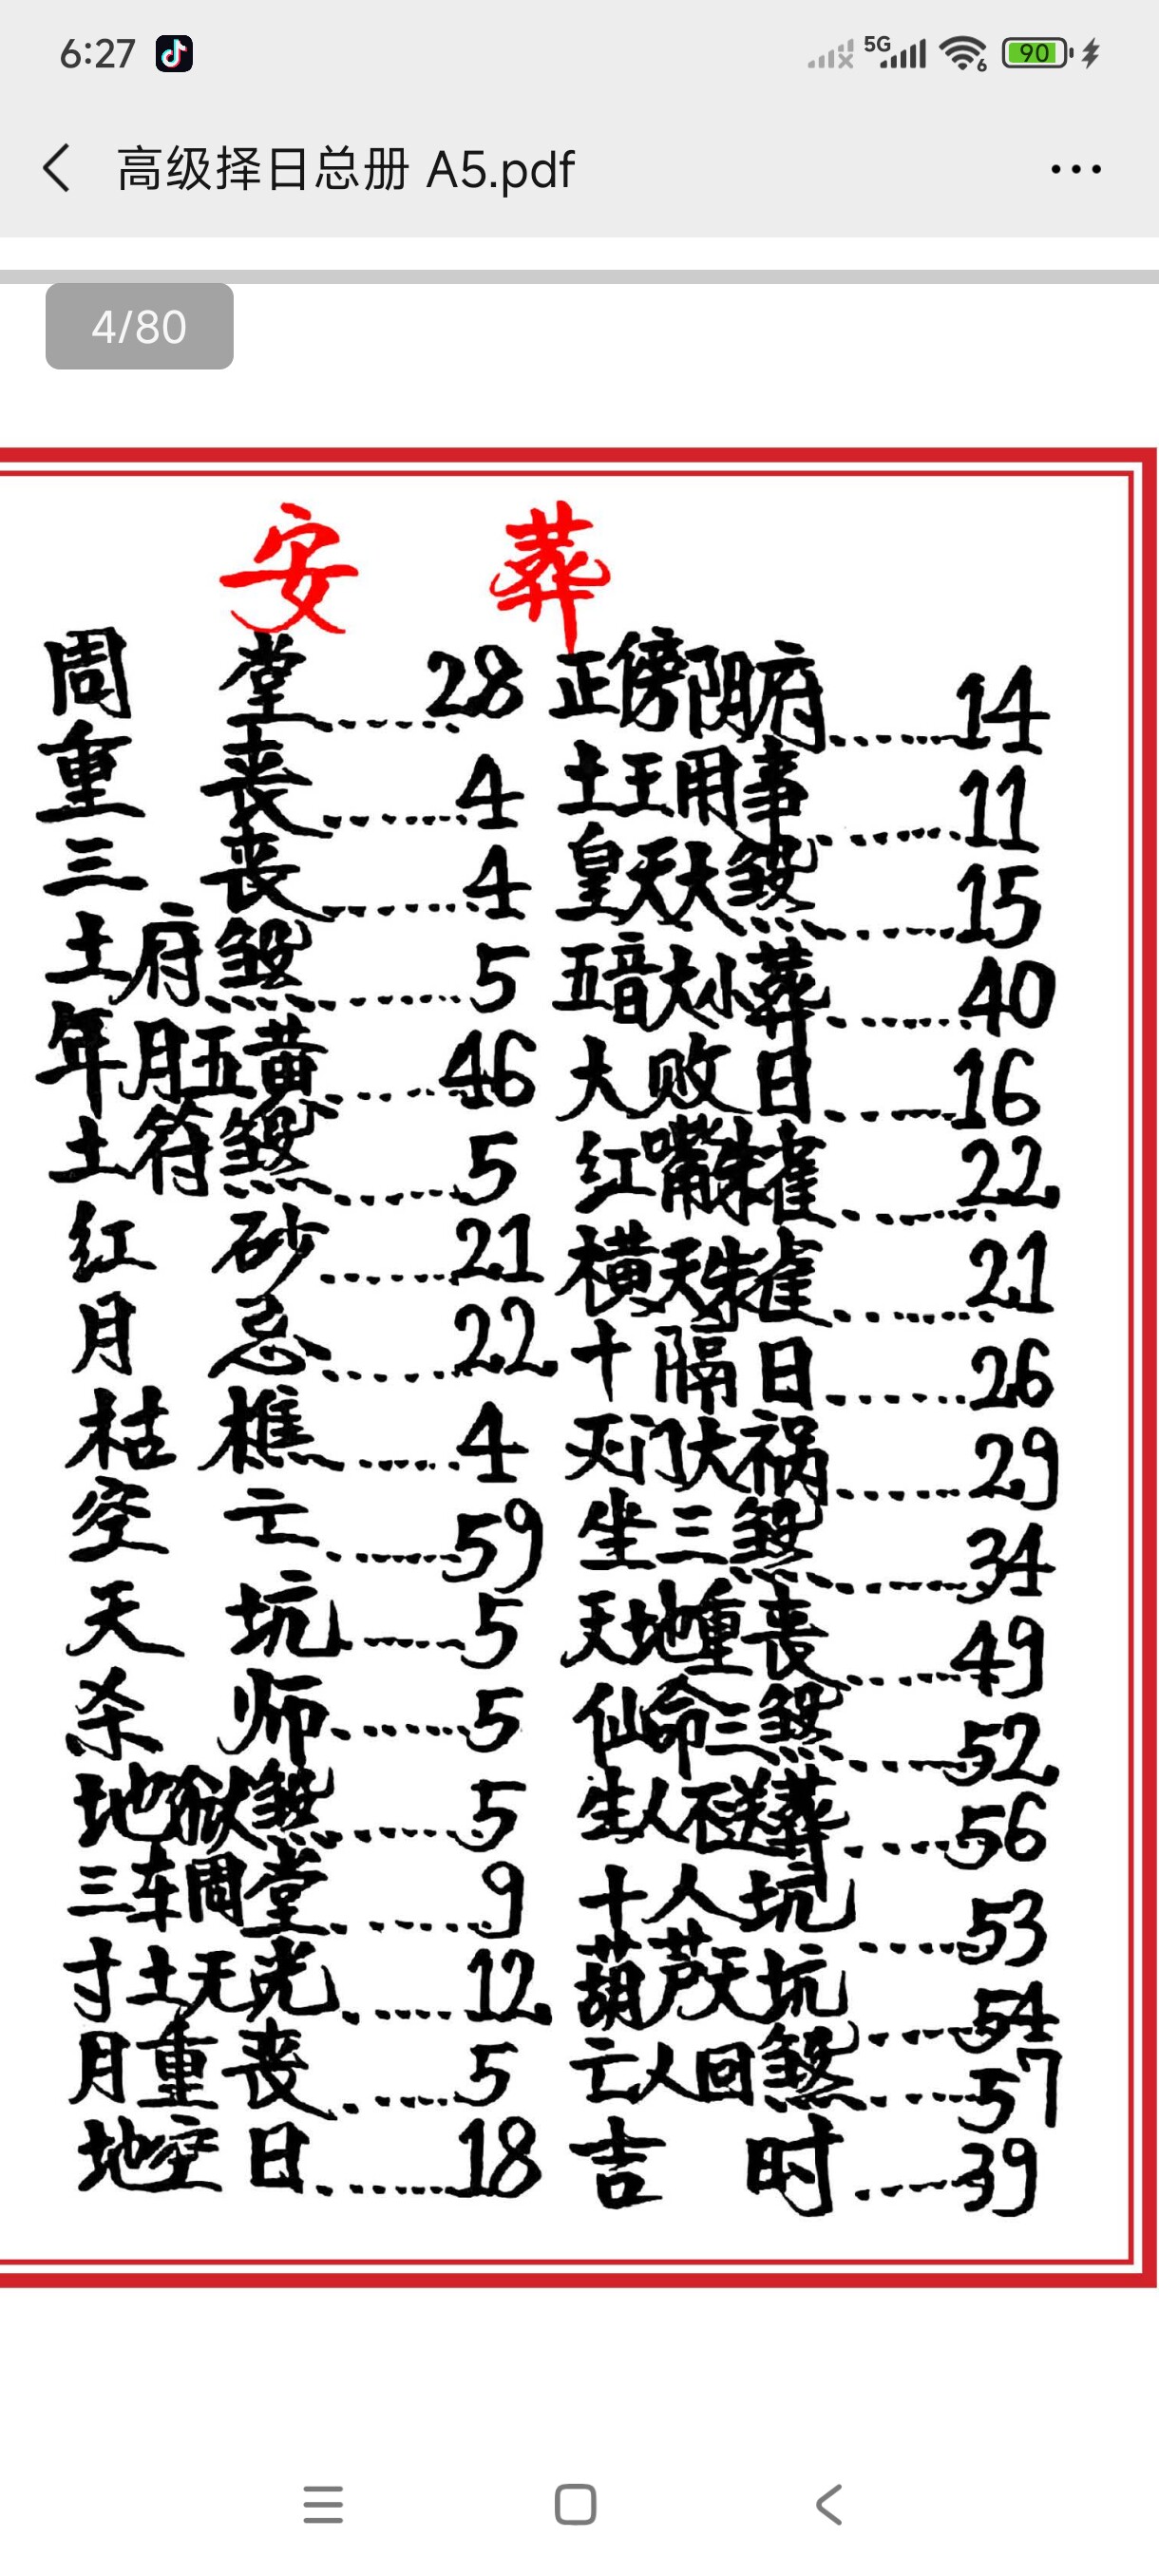 6:27
5G 6 90
高级择日总册 A5.pdf
4/80
安 葬
周 堂......28 正傍阴府......14
重 丧......4 土王用事......11
三 丧......4 皇天大煞......15
土府煞......5 五音大小葬......40
年月五黄......46 大败日......16
土符煞......5 红嘴朱雀......22
红 砂......21 横天朱雀......21
月 忌......22 十隔日......26
枯 樵......4 灭门大祸......29
空 亡......59 坐三煞......34
天 坑......5 天地重丧......49
杀 师......5 仙命三煞......52
地狱煞......5 生人不送葬......56
三车周堂......9 十人坑......53
寸土无光......12 葫芦天坑......54
月重丧......5 亡人回煞......57
地空日......18 吉 时......39